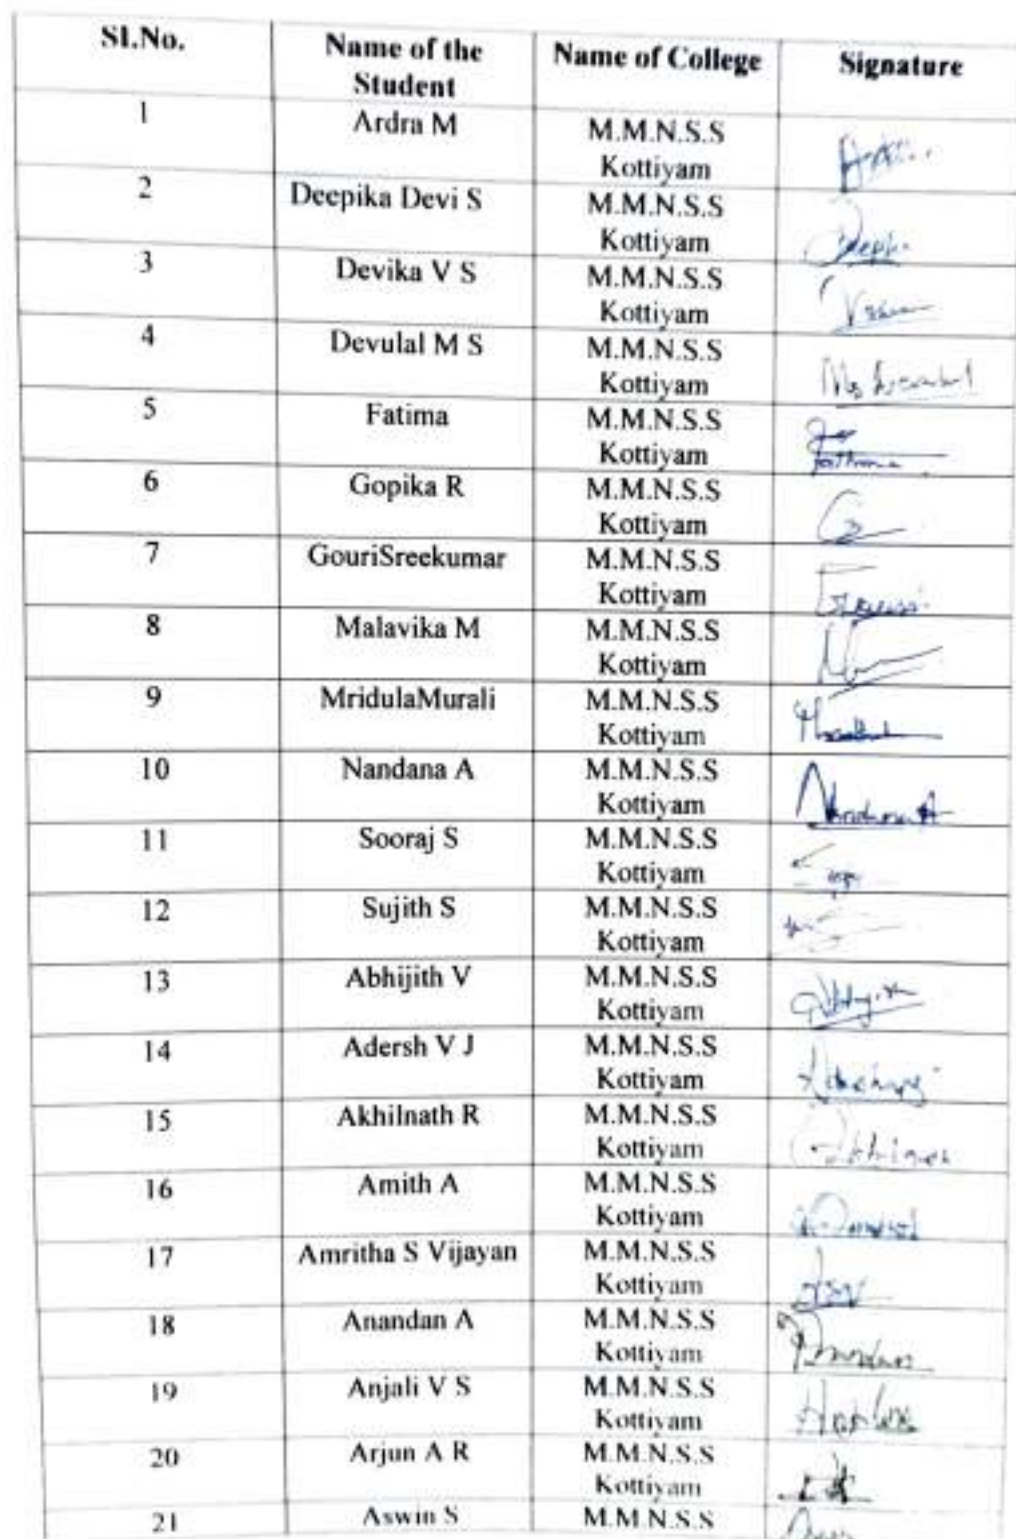 Sl.No. Name of the Student Name of College Signature
1 Ardra M M.M.N.S.S Kottiyam
2 Deepika Devi S M.M.N.S.S Kottiyam
3 Devika V S M.M.N.S.S Kottiyam
4 Devulal M S M.M.N.S.S Kottiyam
5 Fatima M.M.N.S.S Kottiyam
6 Gopika R M.M.N.S.S Kottiyam
7 GouriSreekumar M.M.N.S.S Kottiyam
8 Malavika M M.M.N.S.S Kottiyam
9 MridulaMurali M.M.N.S.S Kottiyam
10 Nandana A M.M.N.S.S Kottiyam
11 Sooraj S M.M.N.S.S Kottiyam
12 Sujith S M.M.N.S.S Kottiyam
13 Abhijith V M.M.N.S.S Kottiyam
14 Adersh V J M.M.N.S.S Kottiyam
15 Akhilnath R M.M.N.S.S Kottiyam
16 Amith A M.M.N.S.S Kottiyam
17 Amritha S Vijayan M.M.N.S.S Kottiyam
18 Anandan A M.M.N.S.S Kottiyam
19 Anjali V S M.M.N.S.S Kottiyam
20 Arjun A R M.M.N.S.S Kottiyam
21 Aswin S M.M.N.S.S